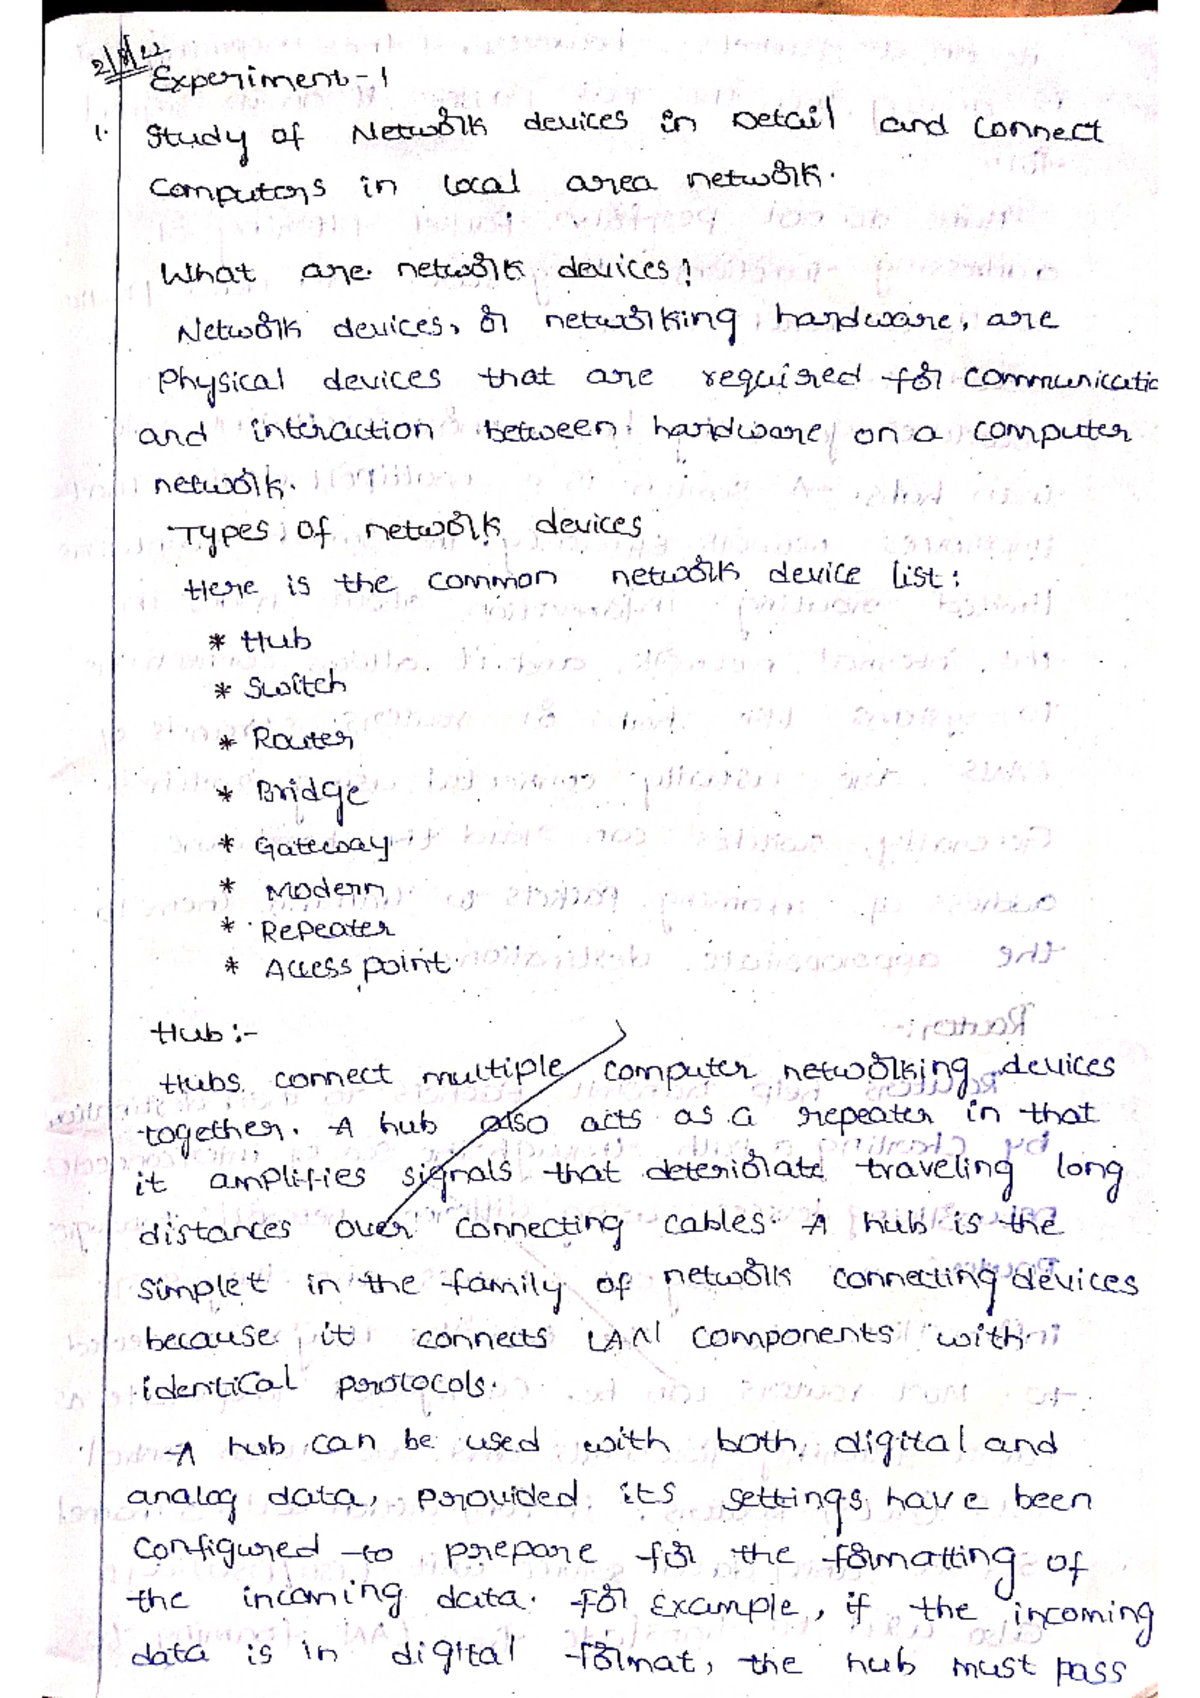 2/8/22
Experiment-1
1. Study of Network devices in Detail and connect
Computors in local area network.
What are network devices?
Network devices, or networking hardware, are
Physical devices that are required for communicatio
and interaction between hardware on a computer
network.
Types of network devices
Here is the common network device list:
* Hub
* Switch
* Router
* Bridge
* Gateway
* Modern
* Repeater
* Access point.
Hub:-
Hubs connect multiple computer networking devices
together. A hub also acts as a repeater in that
it amplifies signals that deteriorate traveling long
distances over connecting cables. A hub is the
simplet in the family of network connecting devices
because it connects LAN components with
identical protocols.
A hub can be used with both digital and
analog data, provided its settings have been
configured to prepare for the formatting of
the incoming data. For Example, if the incoming
data is in digital format, the hub must pass